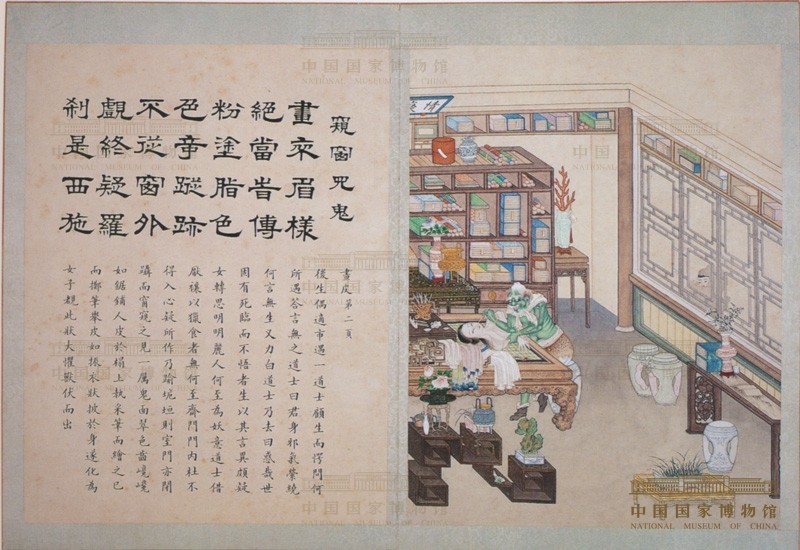 窺窗咒鬼
畫來眉樣
絕當旹傅
粉塗脂色
色奇蹤跡
不從窗外
覷終疑羅
剎是西施
畫皮第二頁
後生偶適市遇一道士顧生而愕問何
所遇答言無之道士曰君身邪氣縈繞
何言無生又力白道士乃去曰惑哉世
固有死臨而不悟者生以其言異頗疑
女轉思明明麗人何至為妖意道士借
厭禳以獵食者無何至齋門門內杜不
得入心疑所作乃踰垝垣則室門亦閉
躡而窗窺之見一厲鬼面翠色齒巉巉
如鋸鋪人皮於榻上執采筆而繪之已
而擲筆舉皮如振衣狀披於身遂化為
女子覩此狀大懼獸伏而出
中国国家博物馆
NATIONAL MUSEUM OF CHINA
中国国家博物馆
NATIONAL MUSEUM OF CHINA